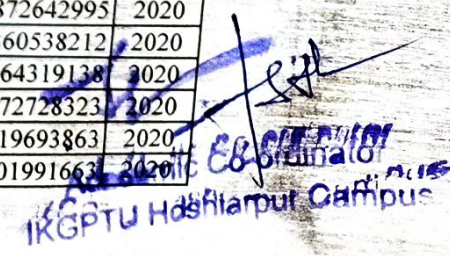 872642995 2020
60538212 2020
64319138 2020
72728323 2020
19693863 2020
01991663 2020
Co-ordinator
IKGPTU Hoshiarpur Campus